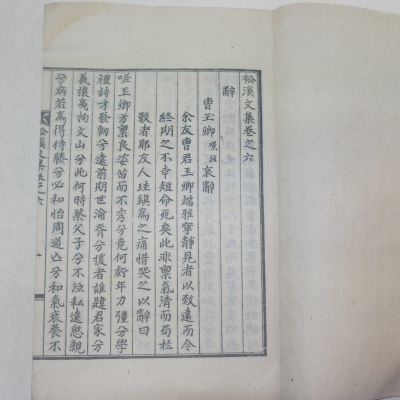 松溪文集卷之六
辭
曺玉卿 哀辭
余友曺君玉卿端雅寧靜見者以致遠而今
終期之不幸短命死矣此非稟氣清而局於
數者耶友人珪鎭爲之痛惜哭之以辭曰
嗟玉卿兮稟良姿苗而不秀兮竟何齡年力彊兮學
禮詩才發軔兮遠前期世淪胥兮援者誰躍君家兮
義攘夷抱文山兮此何時蔡父子兮不泣私遠思親
兮病若爲得侍膝兮必和怡周道亡兮和氣衰養不
松溪文集 卷之六 一